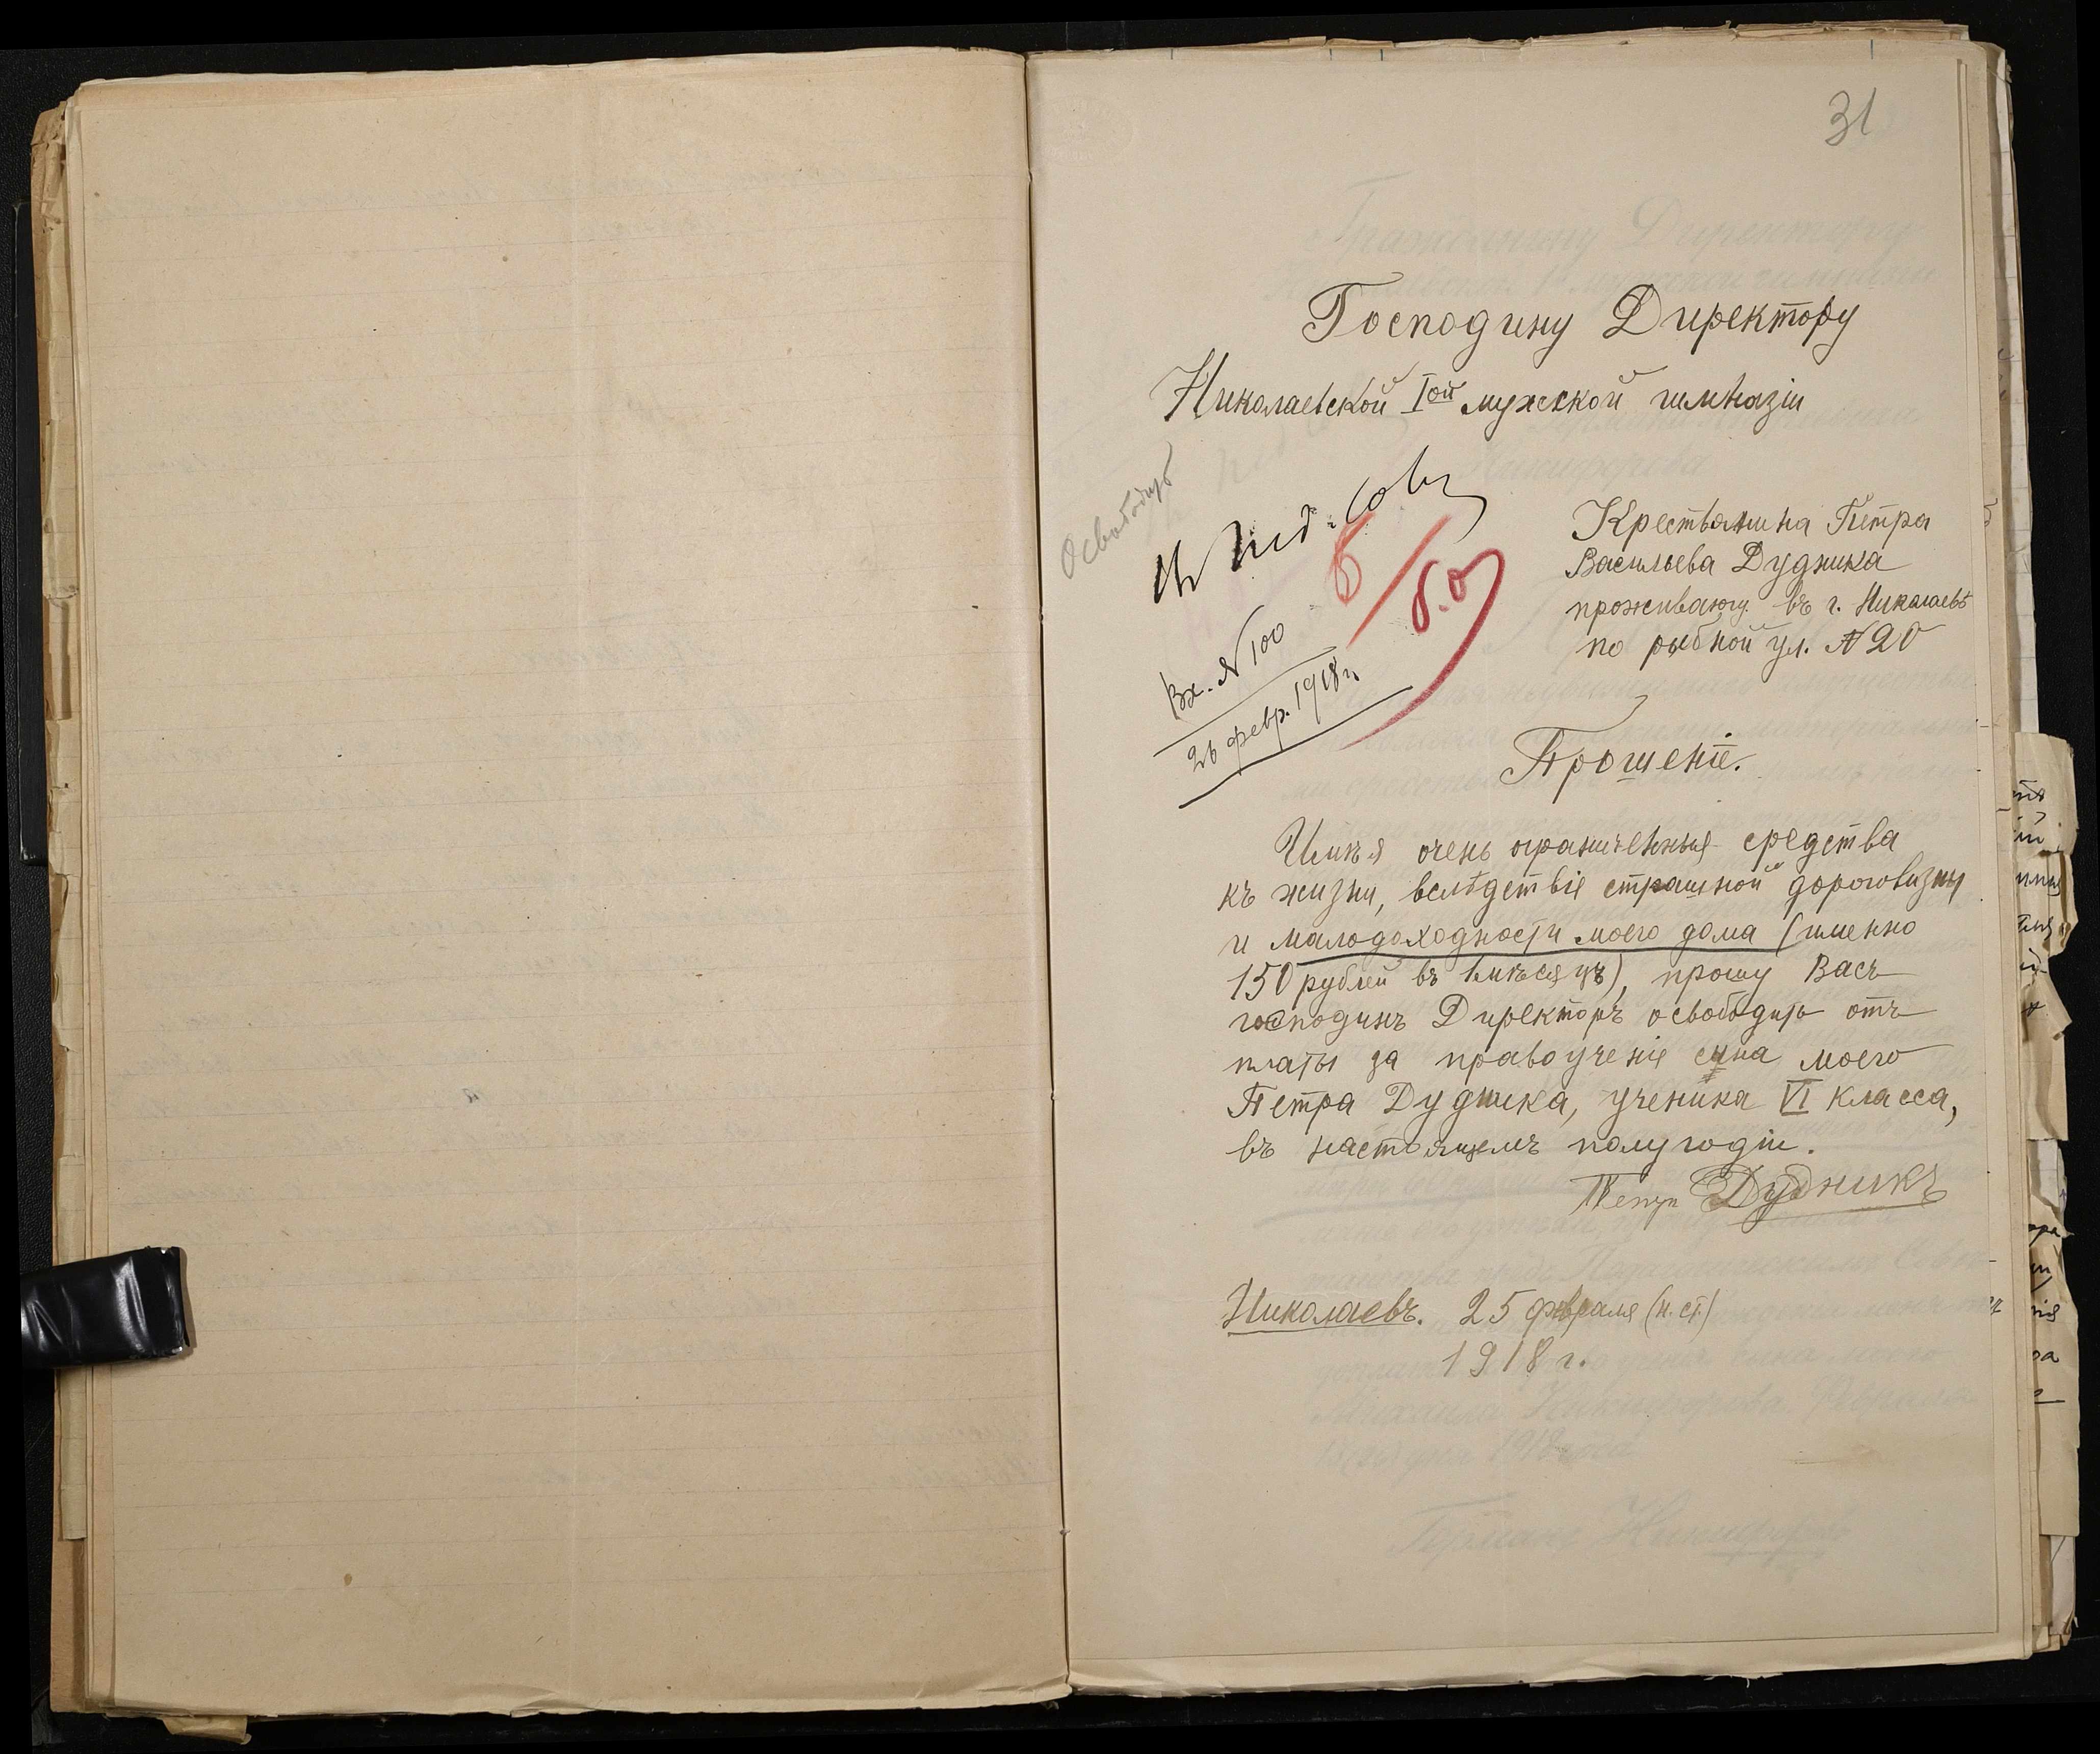 31
Господину Директору
Николаевской Iой мужской гимназіи
Освободить
Въ Пед. Сов.
6/б.о
Вх. № 100
26 февр. 1918 г.
Крестьянина Петра
Васильева Дудника
проживающ. въ г. Николаевѣ
по рыбной ул. № 20
Прошеніе.
Имѣя очень ограниченныя средства
къ жизни, вслѣдствіе страшной дороговизны
и малодоходности моего дома (именно
150 рублей въ 1 мѣсяцъ), прошу Васъ
господинъ Директоръ освободить отъ
платы за правоученіе сына моего
Петра Дудника, ученика VI класса,
въ настоящемъ полугодіи.
Петръ Дудникъ
Николаевъ. 25 февраля (н. ст.)
1918 г.